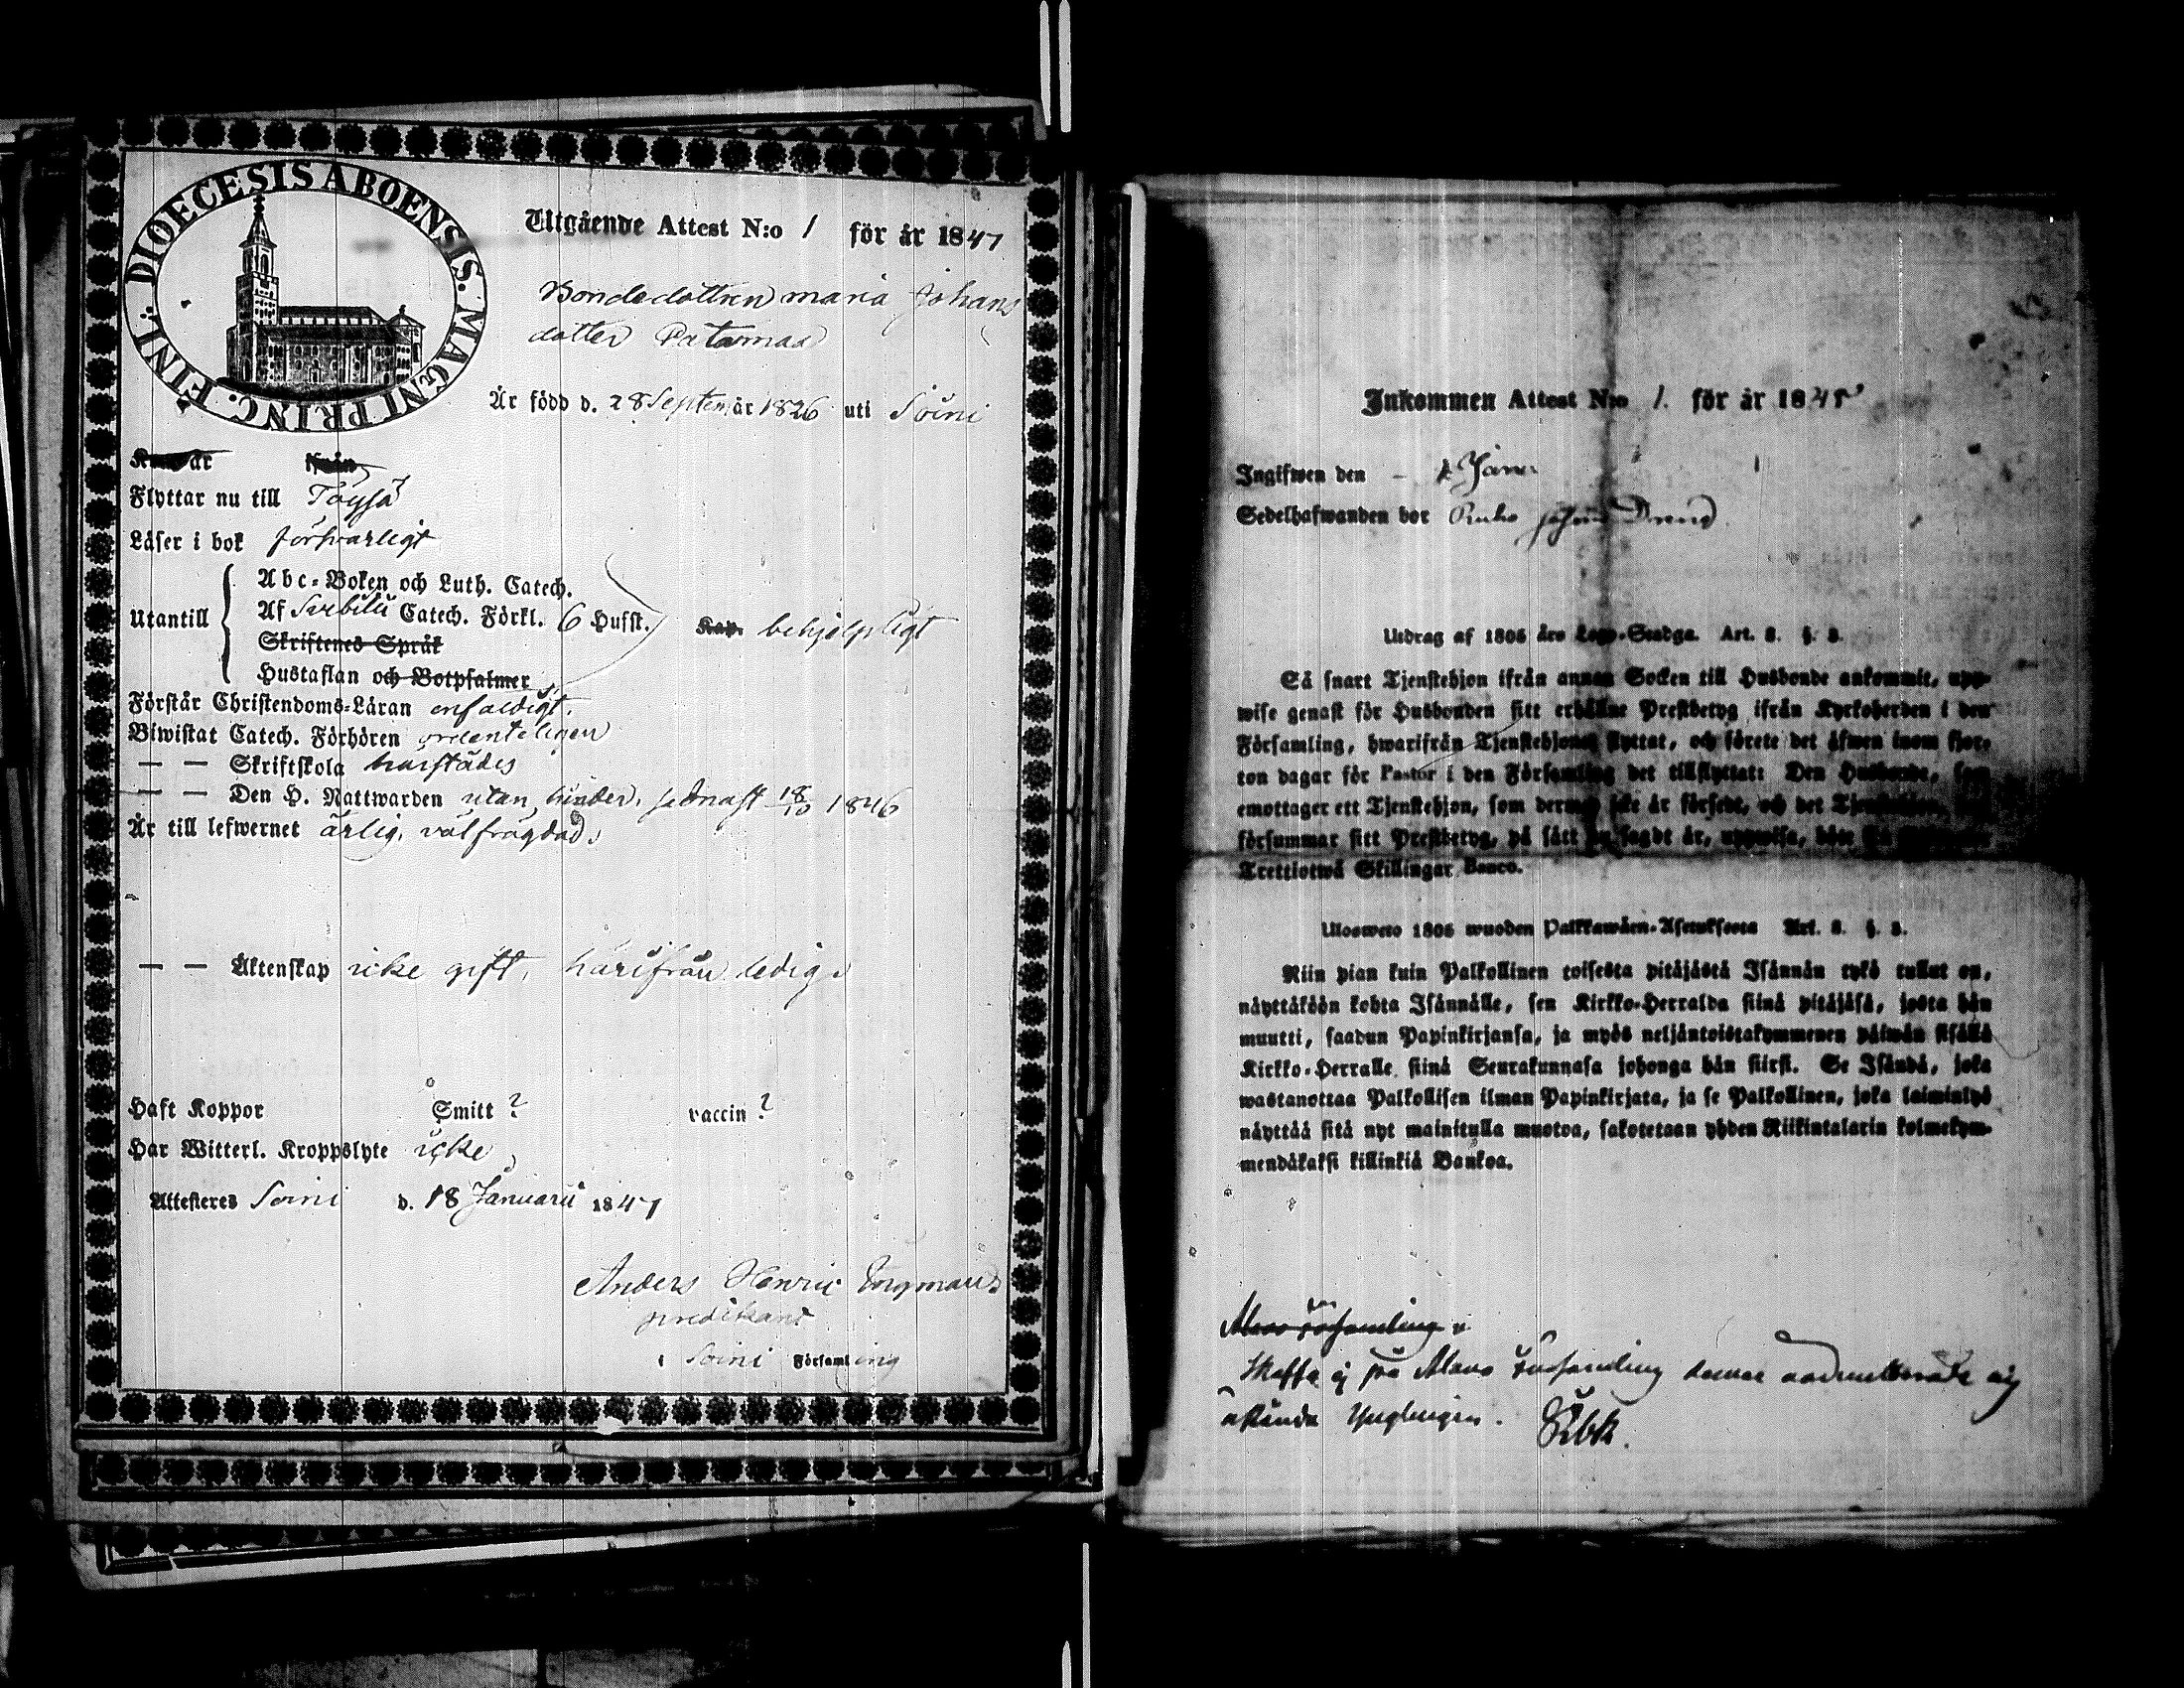 DIOECESIS ABOENSIS. MAGNI PRINC. FINL.
Utgående Attest N:o 1 för år 1847
Bondedottren Maria Johans
dotter
Är född d. 28 Septem år 1826 uti Soini
Flyttar nu till Töysä
Läser i bok försvarligt
Utantill
Abc-Boken och Luth. Catech.
Af Svebilii Catech. Förkl. 6 Hufst. Kap. behjelpligt
Skriftenes Språk
Hustaflan och Botpsalmer
Förstår Christendoms-Läran enfaldigt.
Biwistat Catech. Förhören ordenteligen
— — Skriftskola härstädes
— — Den H. Nattwarden utan hinder, sednast 18/10 1846
Är till lefwernet ärlig, välfrägdad,
— — Äktenskap icke gift, härifrån ledig.
Haft Koppor Smitt ? vaccin ?
Har Witterl. Kroppslyte icke
Attesteres Soini d. 18 Januarii 1847
Anders Henric
predikant
i Soini Församling
Inkommen Attest N:o 1. för år 184
Ingifwen den
Sedelhafwanden bor
Utdrag af 1805 års Lego-Stadga. Art. 3. §. 3.
Så snart Tjenstehjon ifrån annan Socken till Husbonde ankommit, upp-
wise genast för Husbonden sitt erhållne Prestbetyg ifrån Kyrkoherden i den
Församling, hwarifrån Tjenstehjonet flyttat, och förete det äfwen inom fjor-
ton dagar för Pastor i den Församling det tillflyttat: Den Husbonde, som
emottager ett Tjenstehjon, som dermed icke är försedt, och det Tjenstehjon,
försummar sitt Prestbetyg, på sätt nu sagdt är, uppwisa, böte
Trettiotwå Skillingar Banco.
Ulosweto 1805 wuoden Palkkawäen-Asetuksesta Art. 3. §. 3.
Niin pian kuin Palkollinen toisesta pitäjästä Isännän tykö tullut on,
näyttäköön kohta Isännälle, sen Kirkko-Herralda siinä pitäjäsä, josta hän
muutti, saadun Papinkirjansa, ja myös neljäntoistakymmenen päiwän sisällä
Kirkko-Herralle siinä Seurakunnasa johonga hän siirsi. Se Isändä, joka
wastanottaa Palkollisen ilman Papinkirjata, ja se Palkollinen, joka laiminlyö
näyttää sitä nyt mainitulla muotoa, sakotetaan yhden Riikintalarin kolmekym-
mendäkaksi killinkiä Bankoa.